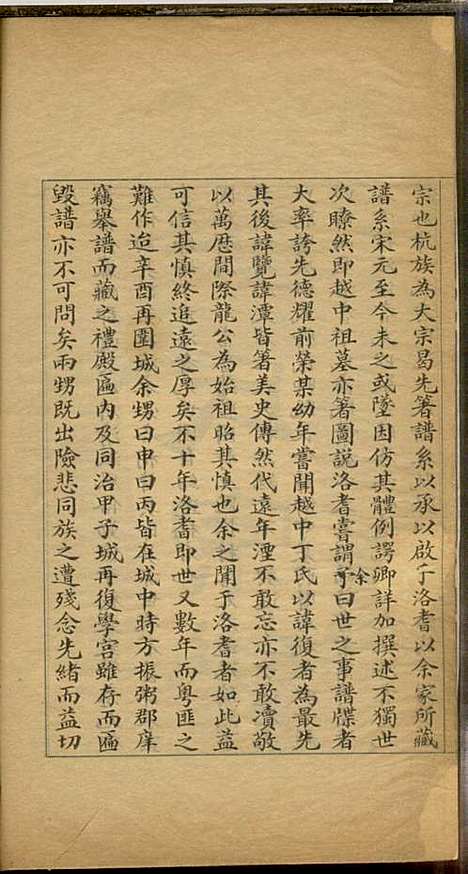 宗也杭族為大宗曷先箸譜系以承以啟于洛耆以余家所藏
譜系宋元至今未之或墜因仿其體例諤卿詳加撰述不獨世
次瞭然即越中祖墓亦箸圖說洛耆嘗謂余曰世之事譜牒者
大率誇先德耀前榮某幼年嘗聞越中丁氏以諱復者為最先
其後諱覽諱潭皆箸美史傳然代遠年湮不敢忘亦不敢瀆敬
以萬厯間際龍公為始祖昭其慎也余之聞于洛耆者如此益
可信其慎終追遠之厚矣不十年洛耆即世又數年而粤匪之
難作迨辛酉再圍城余甥曰申曰丙皆在城中時方振粥郡庠
竊舉譜而藏之禮殿匾內及同治甲子城再復學宮雖存而匾
毀譜亦不可問矣兩甥既出險悲同族之遭殘念先緒而益切